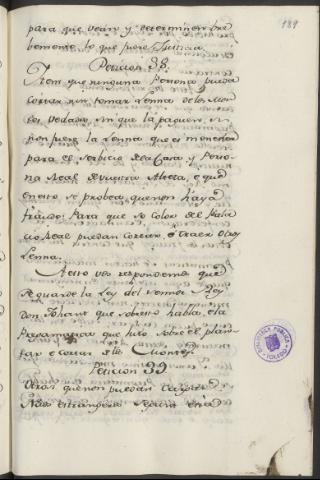 189
para que vean y determinen bre
bemente lo que fuere Justicia.
Peticion 38.
Item que ninguna Persona pueda
cortar nin tomar Lenna de los Mon
tes vedados, sin que la paguen, si
non fuere la Lenna que es menester
para el serbicio de la Casa y Perso
na Real de vuestra Alteza, e que
en esto se probea, que non haya
fraude: Para que so color del Pala
cio Real puedan Cortar e traer otra
Lenna.
A esto vos respondemos que
se guarde la Ley del sennor Rey
don Johan que sobresto habla, e la
Prematica que fizo sobre el plan
tar e cortar de los Montes.
Peticion 39.
Otrosi que non puedan
Naos estrangeras segund
BIBLIOTECA PUBLICA
TOLEDO